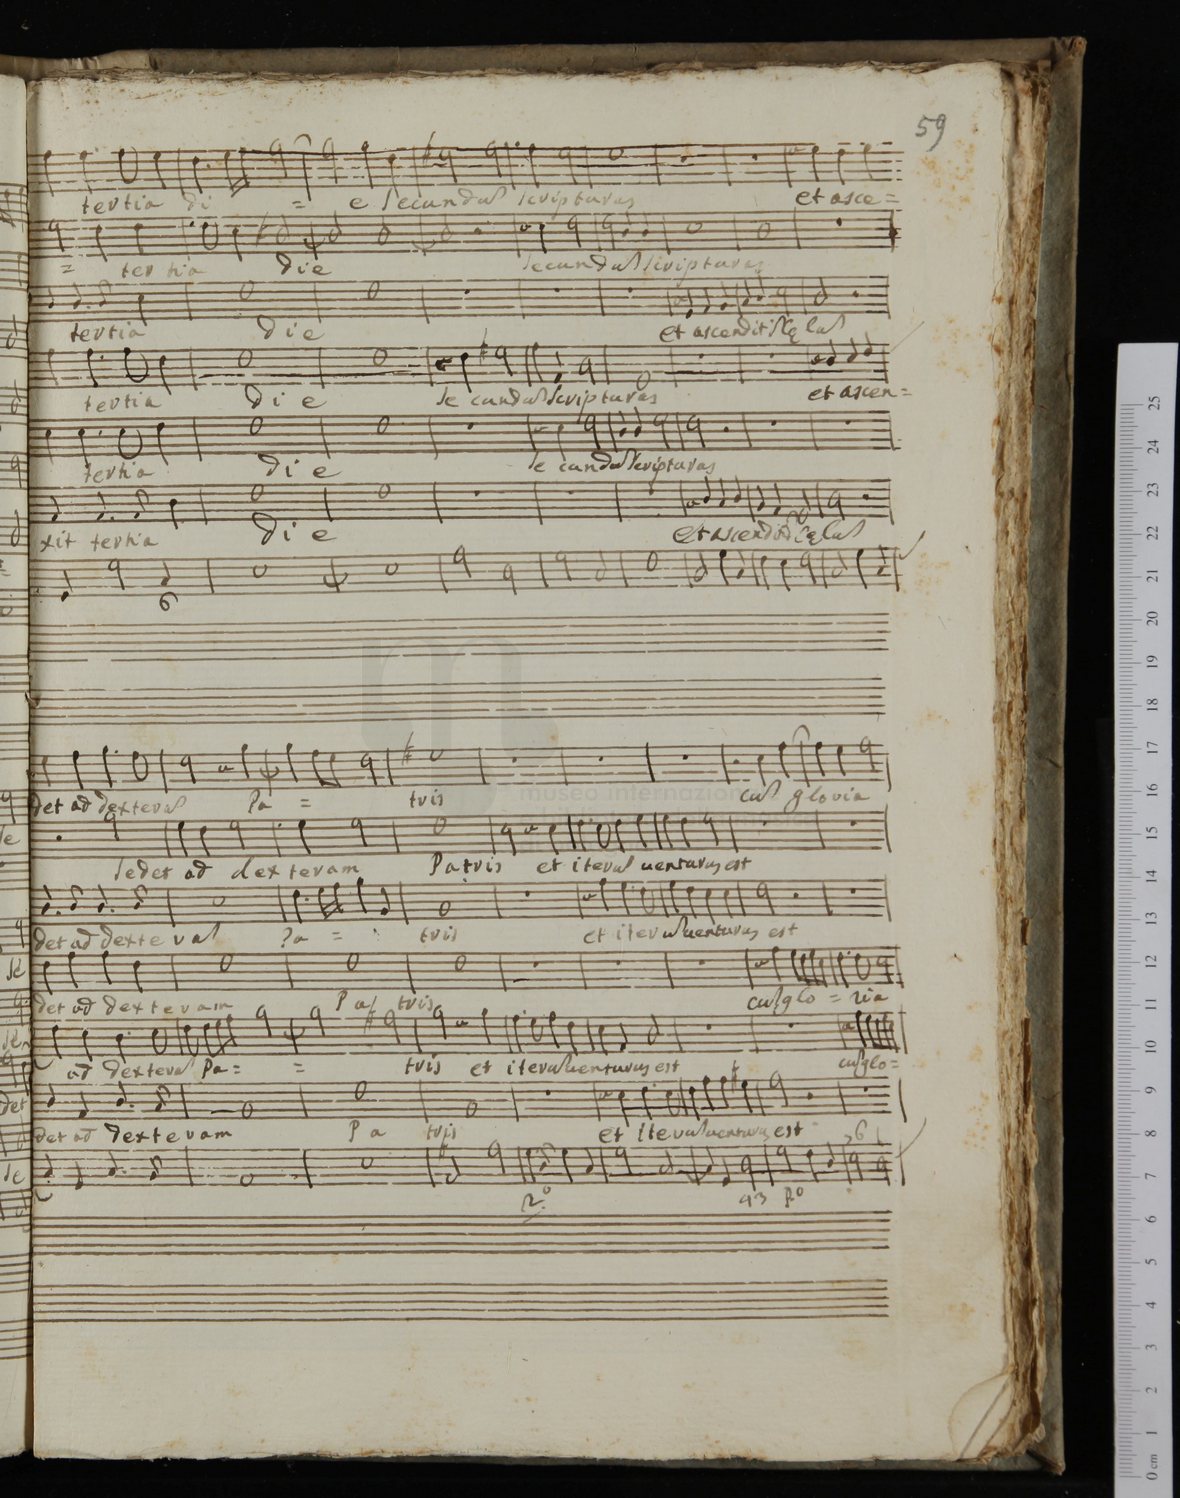 59
tertia di = e secundu scripturas et asce=
= tertia die secundu scripturas
tertia die et ascendit i celu
tertia die secundu scripturas et ascen=
tertia die secundu scripturas
xit tertia die et ascendit i celu
6
det ad dextera Pa = tris cu gloria
sedet ad dexteram Patris et iteru uenturus est
det ad dextera Pa = tris et iteru uenturus est
det ad dexteram Pa tris cu glo = ria
ad dextera Pa = = tris et iteru uenturus est cu glo=
det ad dexteram Pa tris et iteru uenturus est
6
43
museo internazion
0 cm 1 2 3 4 5 6 7 8 9 10 11 12 13 14 15 16 17 18 19 20 21 22 23 24 25